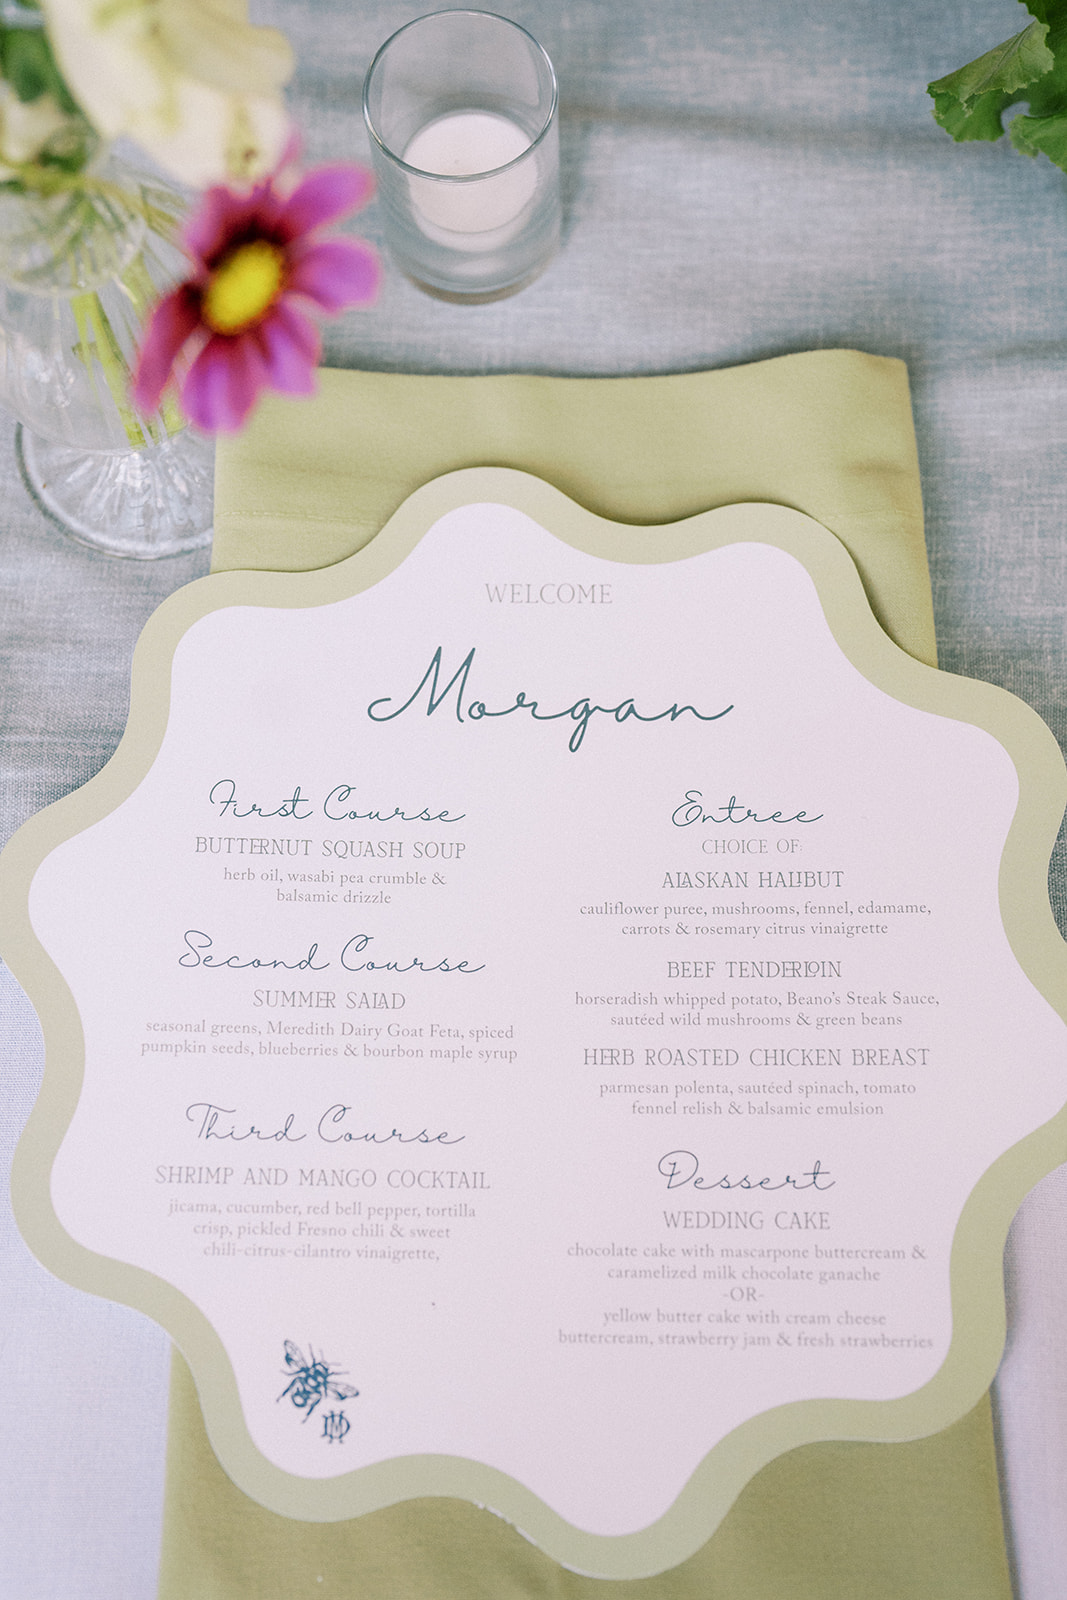 WELCOME
Morgan
First Course
BUTTERNUT SQUASH SOUP
herb oil, wasabi pea crumble &
balsamic drizzle
Second Course
SUMMER SALAD
seasonal greens, Meredith Dairy Goat Feta, spiced
pumpkin seeds, blueberries & bourbon maple syrup
Third Course
SHRIMP AND MANGO COCKTAIL
jicama, cucumber, red bell pepper, tortilla
crisp, pickled Fresno chili & sweet
chili-citrus-cilantro vinaigrette,
Entree
CHOICE OF:
ALASKAN HALIBUT
cauliflower puree, mushrooms, fennel, edamame,
carrots & rosemary citrus vinaigrette
BEEF TENDERLOIN
horseradish whipped potato, Beano's Steak Sauce,
sautéed wild mushrooms & green beans
HERB ROASTED CHICKEN BREAST
parmesan polenta, sautéed spinach, tomato
fennel relish & balsamic emulsion
Dessert
WEDDING CAKE
chocolate cake with mascarpone buttercream &
caramelized milk chocolate ganache
-OR-
yellow butter cake with cream cheese
buttercream, strawberry jam & fresh strawberries